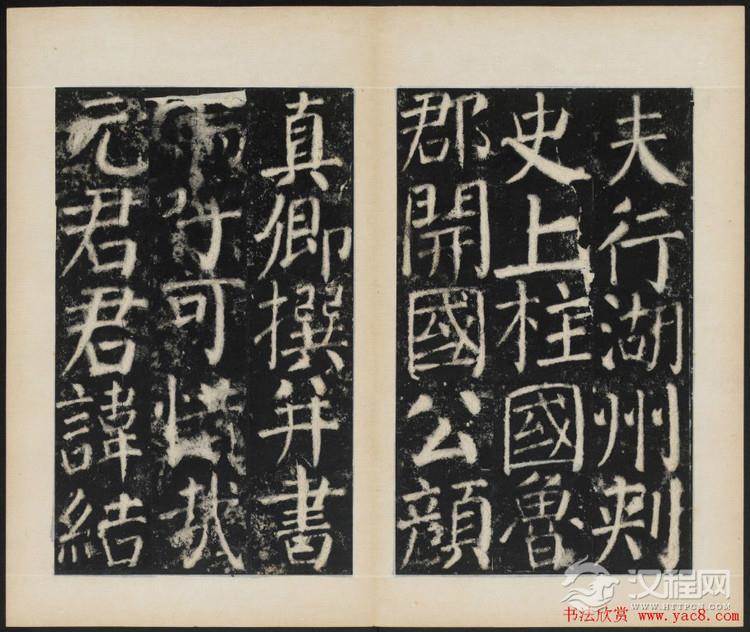 夫行湖州刾
史上柱國魯
郡開國公顏
真卿撰并書
呼可惜哉
元君君諱結
汉程网
书法欣赏 www.yac8.com